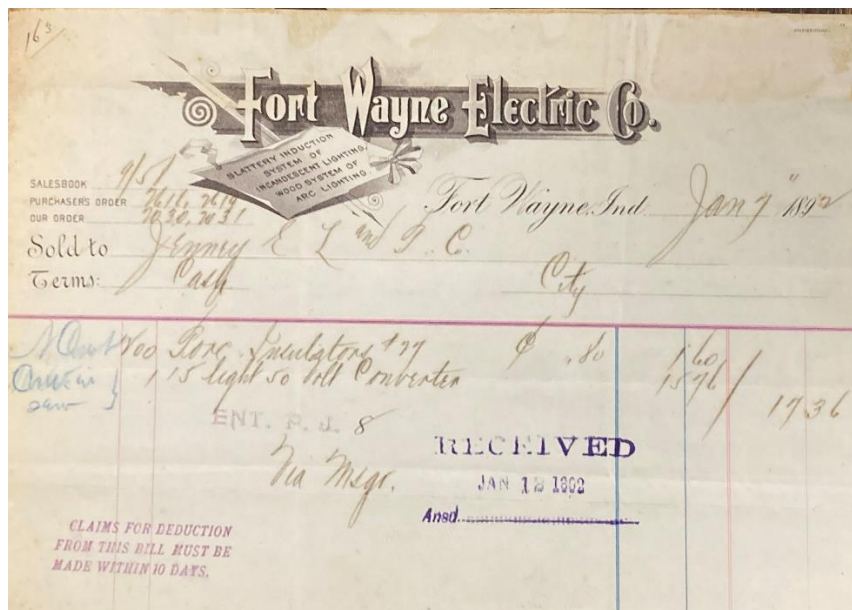 Fort Wayne Electric Co.
SLATTERY INDUCTION
SYSTEM OF
INCANDESCENT LIGHTING,
WOOD SYSTEM OF
ARC LIGHTING
SALESBOOK 9/51
PURCHASER'S ORDER 2618, 2619
OUR ORDER 2030, 2031
Fort Wayne, Ind. Jan 7" 1892
Sold to Jenney E L and P. C.
Terms: Cash City
200 Porc. Insulators .80 1 60
1 15 light 50 Volt Converter 15 76
17 36
ENT. P. J. 8
RECEIVED
Via Msgr.
JAN 1892
Ansd.
CLAIMS FOR DEDUCTION
FROM THIS BILL MUST BE
MADE WITHIN 10 DAYS.